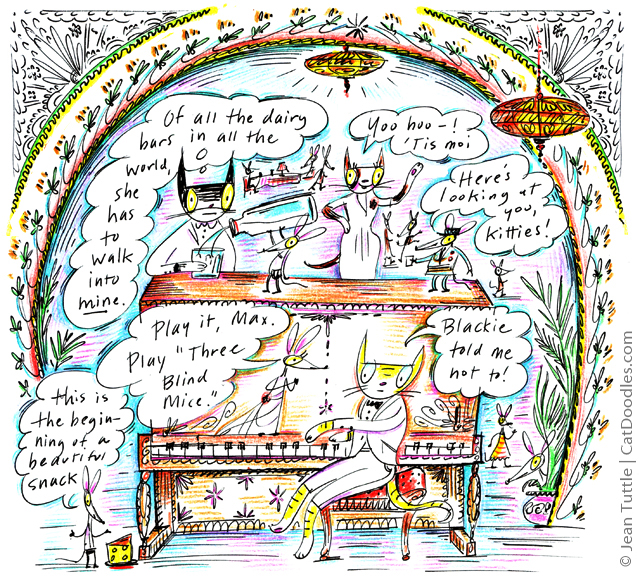 Of all the dairy
bars in all the
world,
she
has
to
walk
into
mine.
Yoo hoo-!
'Tis moi
Here's
looking at
you,
kitties!
Play it, Max.
Play "Three
Blind
Mice."
Blackie
told me
not to!
this is
the begin-
ning of a
beautiful
snack
© Jean Tuttle | CatDoodles.com